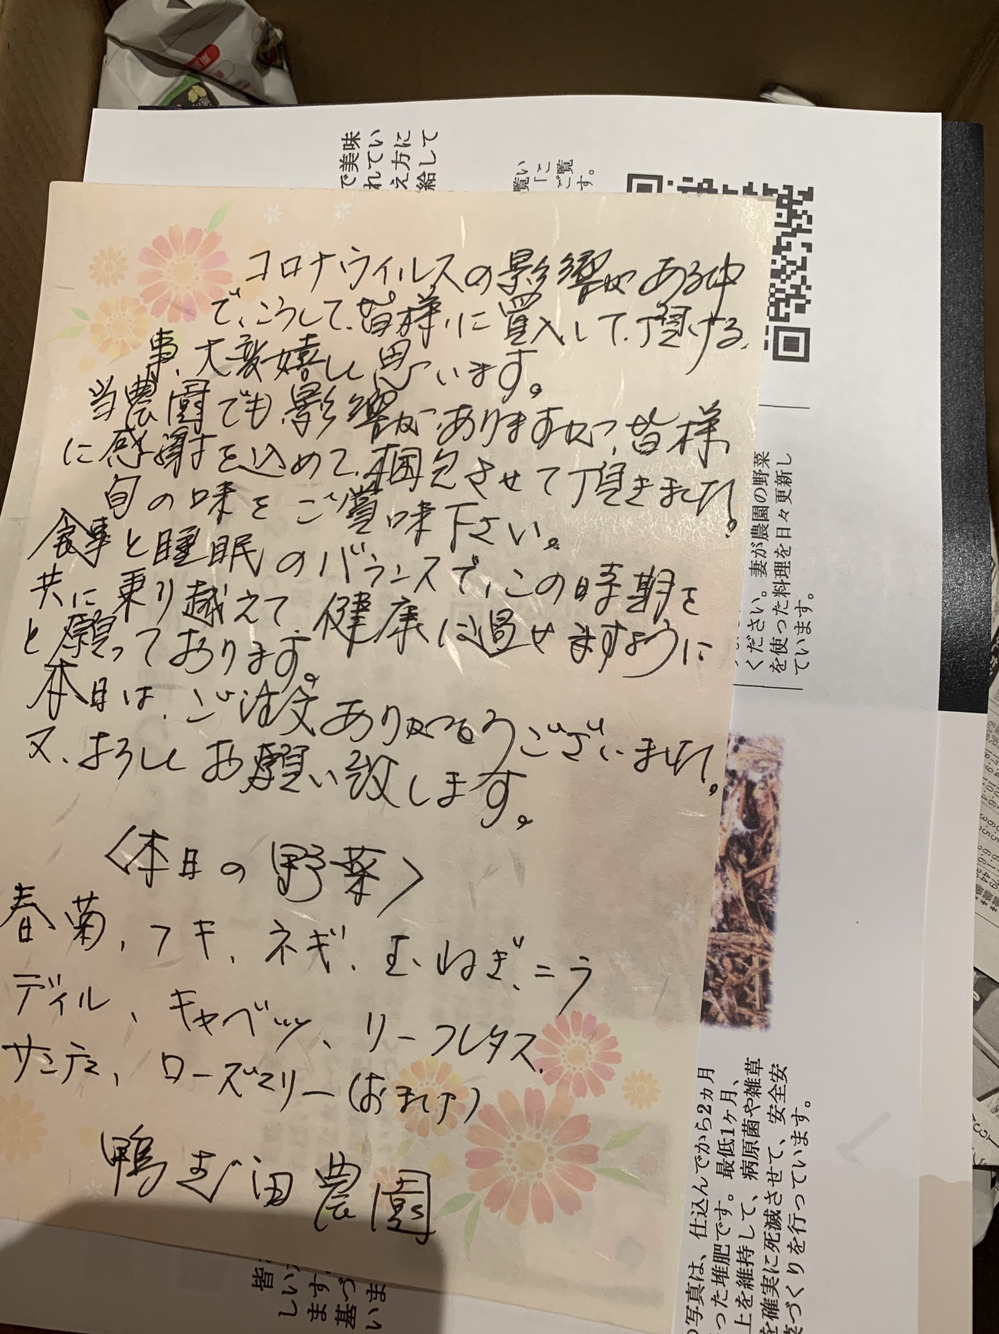 コロナウィルスの影響がある中
で、こうして、皆様に買入して頂ける
事、大変嬉しく思います。
当農園でも影響がありますが、皆様
に感謝を込めて、梱包させて頂きました。
旬の味をご賞味下さい。
食事と睡眠のバランスで、この時期を
共に乗り越えて、健康に過せますように
と願っております。
本日は、ご注文ありがとうございました。
又、よろしくお願い致します。
〈本日の野菜〉
春菊、フキ、ネギ、玉ねぎ、ニラ
ディル、キャベツ、リーフレタス、
サニーレタス、ローズマリー(おまけ)
鴨志田農園
で美味
れてい
え方に
給して
覧い
「こ
ご覧
す。
ください。妻が農園の野菜
を使った料理を日々更新し
ています。
の写真は、仕込んでから2ヵ月
った堆肥です。最低1ヶ月、
上を維持して、病原菌や雑草
を確実に死滅させて、安全安
づくりを行っています。
皆
しい
ます
基づ
いま